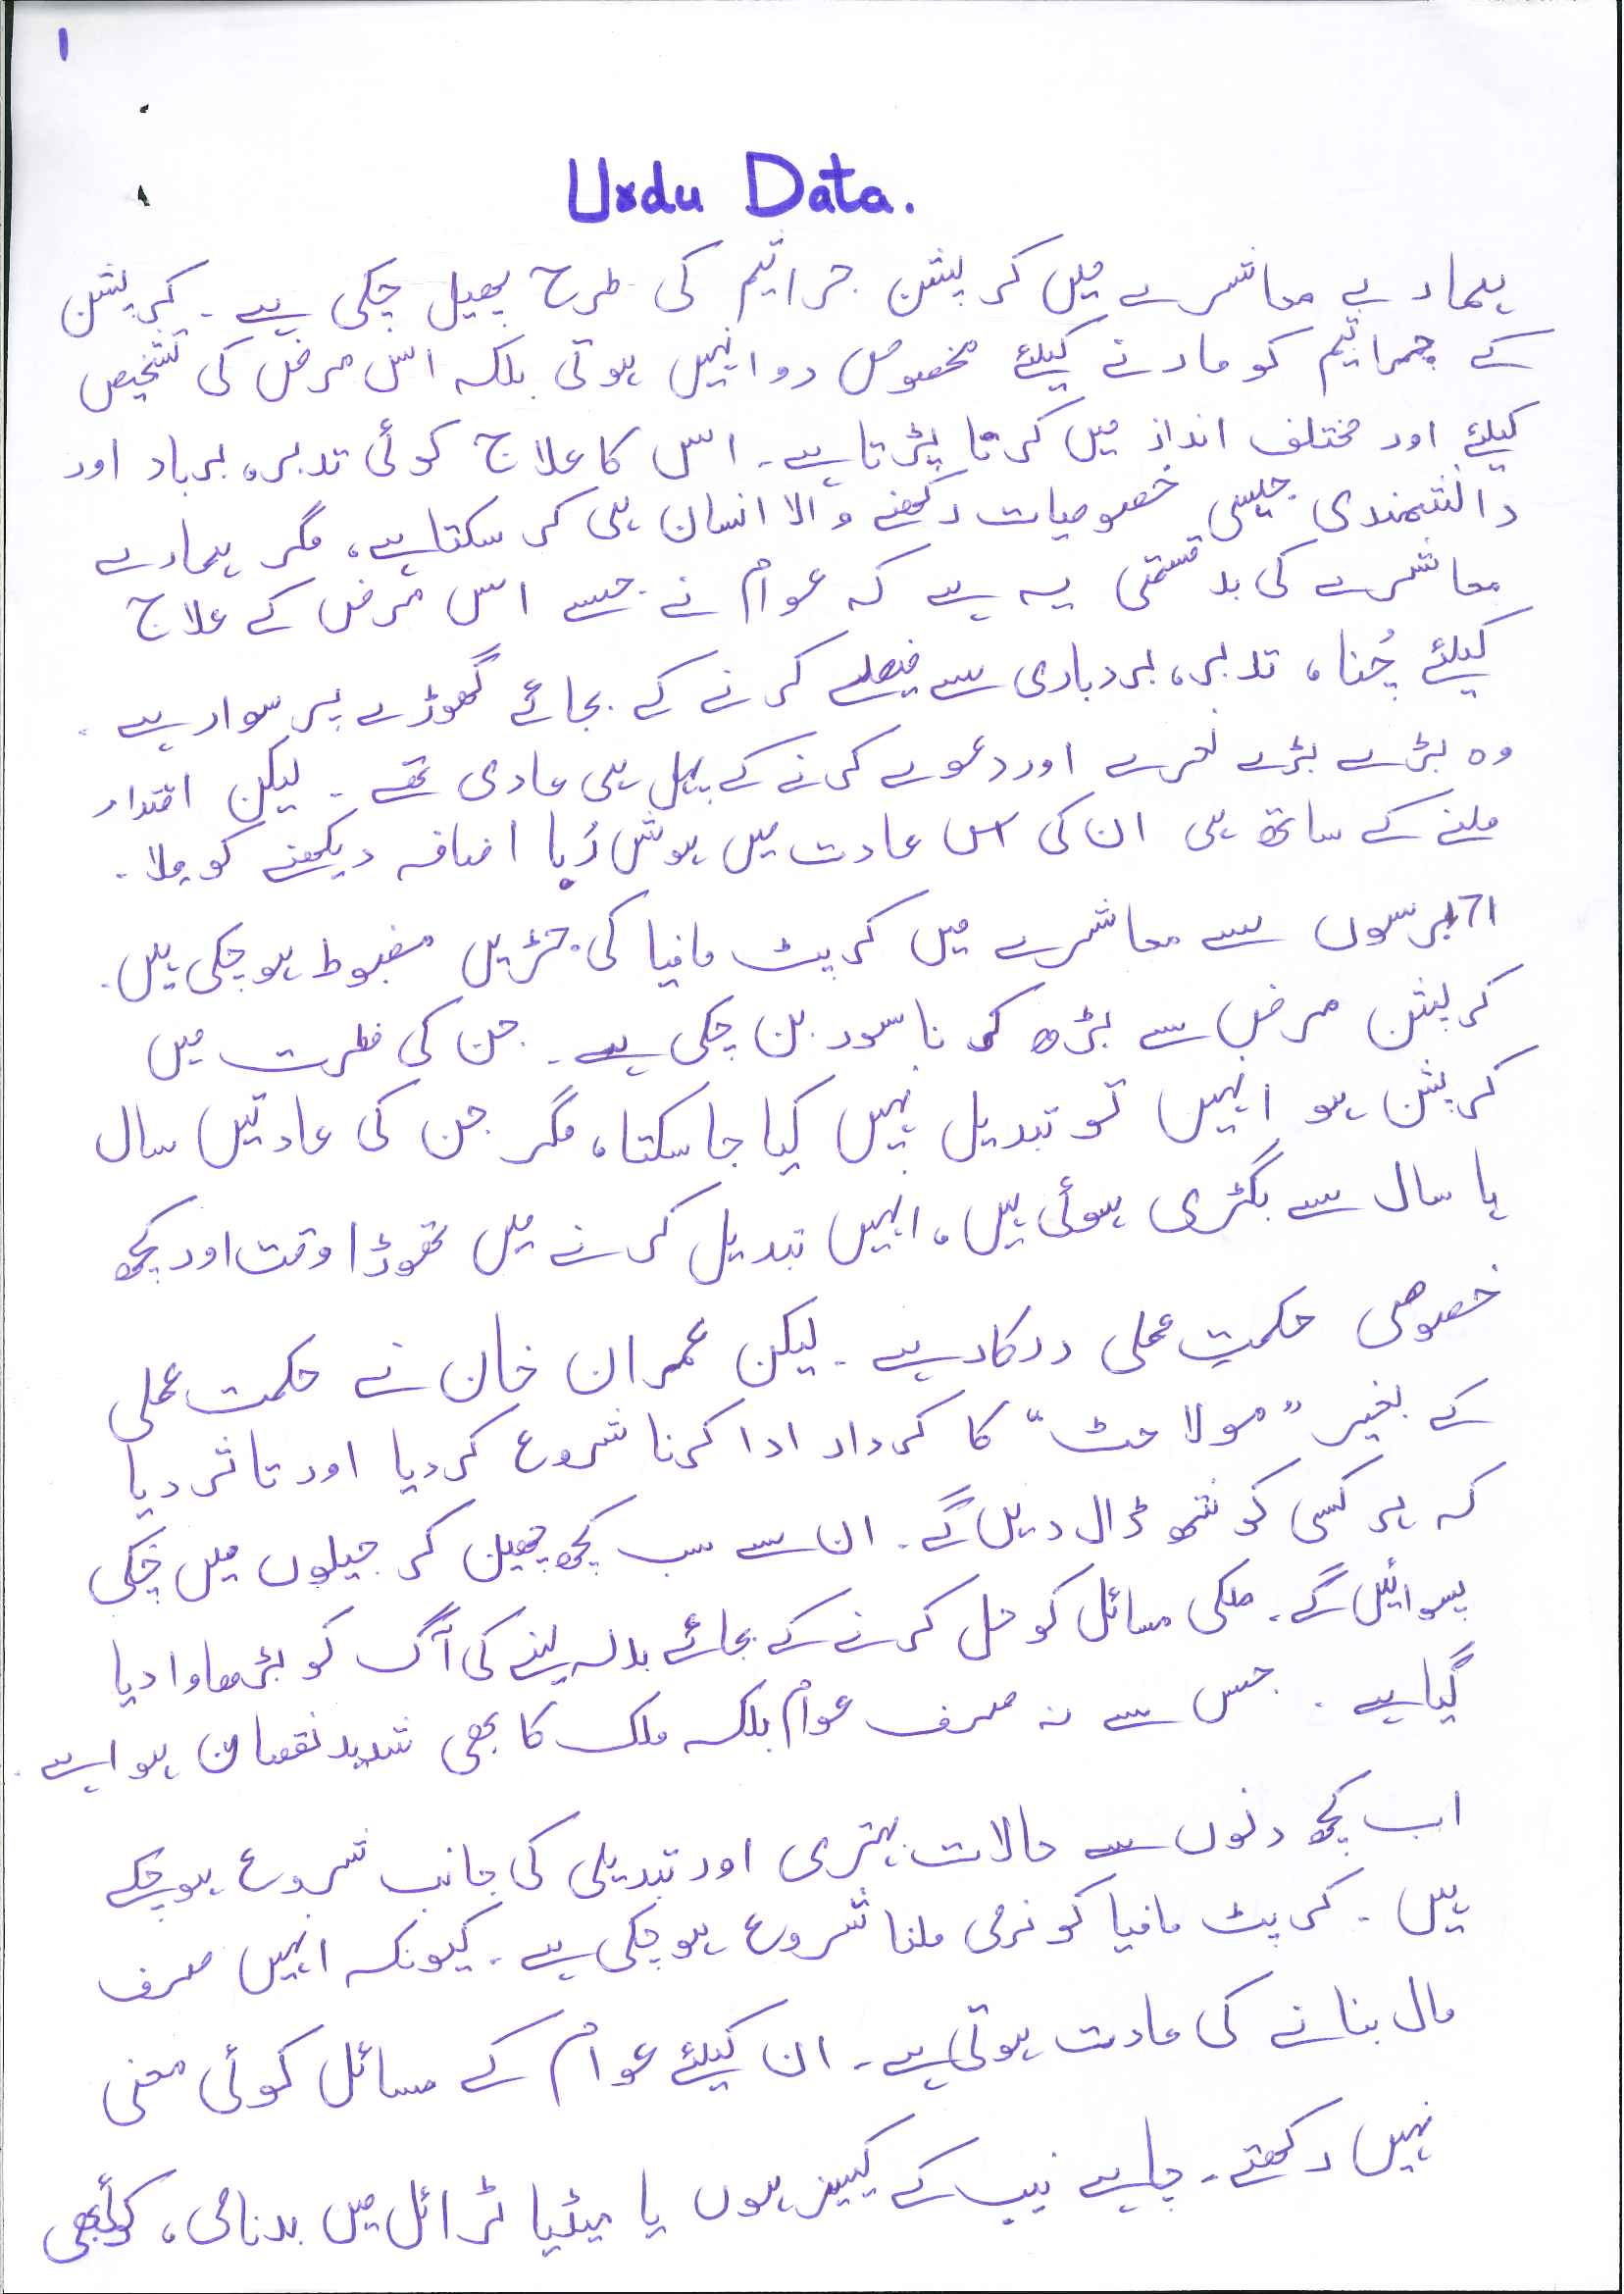 1
Urdu Data.
ہمارے معاشرے میں کرپشن جراثیم کی طرح پھیل چکی ہے ۔ کرپشن
کے جراثیم کو مارنے کیلئے مخصوص دوا نہیں ہوتی بلکہ اس مرض کی تشخیص
کیلئے اور مختلف انداز میں کرنا پڑتا ہے ۔ اس کا علاج کوئی تدبر، برباد اور
دانشمندی جیسی خصوصیات رکھنے والا انسان ہی کر سکتا ہے، مگر ہمارے
معاشرے کی بد قسمتی یہ ہے کہ عوام نے جسے اس مرض کے علاج
کیلئے چُنا، تدبر، بردباری سے فیصلے کرنے کے بجائے گھوڑے پر سوار ہے ۔
وہ بڑے بڑے نعرے اور دعوے کرنے کے پہل ہی عادی تھے ۔ لیکن اقتدار
ملنے کے ساتھ ہی ان کی اس عادت میں ہوش رُبا اضافہ دیکھنے کو ملا ۔
71 برسوں سے معاشرے میں کرپٹ مافیا کی جڑیں مضبوط ہو چکی ہیں ۔
کرپشن مرض سے بڑھ کر ناسور بن چکی ہے ۔ جن کی فطرت میں
کرپشن ہو انہیں تو تبدیل نہیں کیا جا سکتا، مگر جن کی عادتیں سال
ہا سال سے بگڑی ہوئی ہیں، انہیں تبدیل کرنے میں تھوڑا وقت اور کچھ
خصوصی حکمتِ عملی درکار ہے ۔ لیکن عمران خان نے حکمت عملی
کے بغیر "مولا جٹ" کا کردار ادا کرنا شروع کر دیا اور تاثر دیا
کہ ہر کسی کو نتھ ڈال دیں گے ۔ ان سے سب کچھ چھین کر جیلوں میں چکی
پسوائیں گے ۔ ملکی مسائل کو حل کرنے کے بجائے بدلہ لینے کی آگ کو بڑھاوا دیا
گیا ہے ۔ جس سے نہ صرف عوام بلکہ ملک کا بھی شدید نقصان ہوا ہے ۔
اب کچھ دنوں سے حالات بہتری اور تبدیلی کی جانب شروع ہو چکے
ہیں ۔ کرپٹ مافیا کو نرمی ملنا شروع ہو چکی ہے ۔ کیونکہ انہیں صرف
مال بنانے کی عادت ہوتی ہے ۔ ان کیلئے عوام کے مسائل کوئی معنی
نہیں رکھتے ۔ چاہے نیب کے کیسز ہوں یا میڈیا ٹرائل میں بدنامی، کوئی بھی